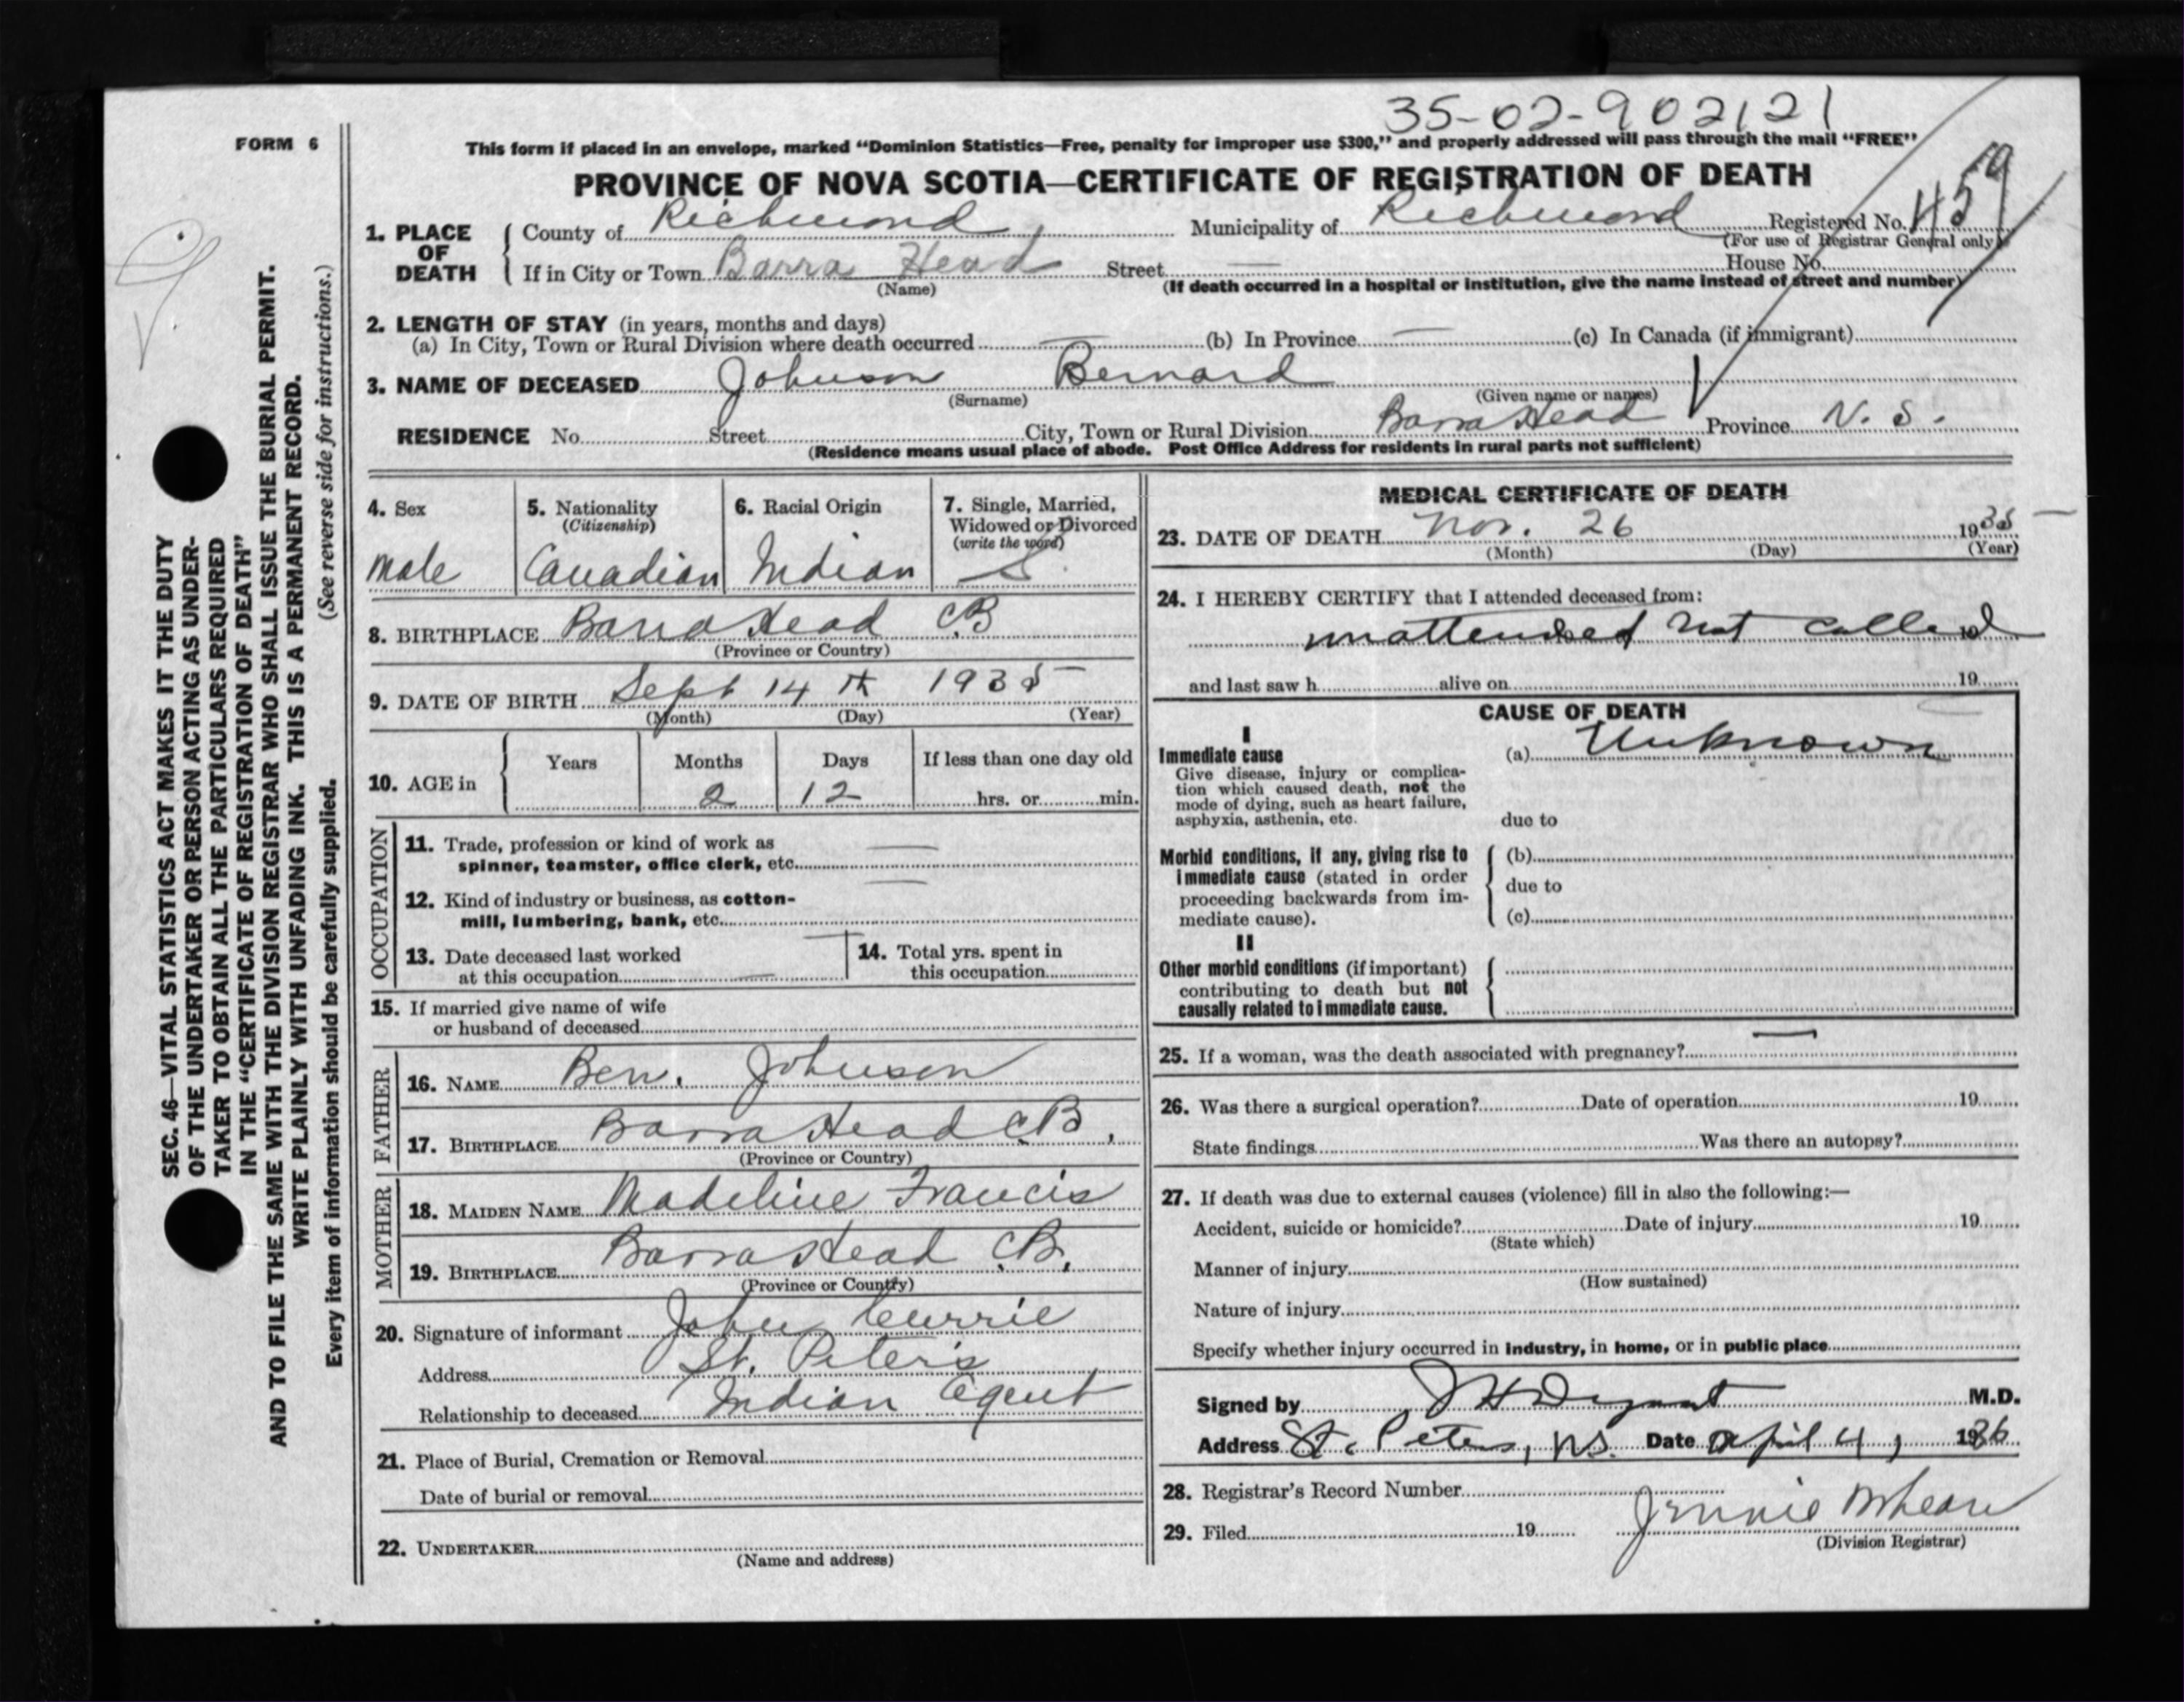 35-02-902121
FORM 6
This form if placed in an envelope, marked "Dominion Statistics—Free, penalty for improper use $300," and properly addressed will pass through the mail "FREE"
PROVINCE OF NOVA SCOTIA—CERTIFICATE OF REGISTRATION OF DEATH
1. PLACE OF DEATH
County of Richmond Municipality of Richmond Registered No. 459
(For use of Registrar General only)
If in City or Town Barra Head Street — House No.
(Name) (If death occurred in a hospital or institution, give the name instead of street and number)
2. LENGTH OF STAY (in years, months and days)
(a) In City, Town or Rural Division where death occurred — (b) In Province — (c) In Canada (if immigrant)
3. NAME OF DECEASED Johnson Bernard
(Surname) (Given name or names)
RESIDENCE No. Street City, Town or Rural Division Barra Head Province N. S.
(Residence means usual place of abode. Post Office Address for residents in rural parts not sufficient)
4. Sex
male
5. Nationality
(Citizenship)
Canadian
6. Racial Origin
Indian
7. Single, Married,
Widowed or Divorced
(write the word)
S
8. BIRTHPLACE Barra Head C.B
(Province or Country)
9. DATE OF BIRTH Sept 14 th 1935
(Month) (Day) (Year)
10. AGE in Years Months Days If less than one day old
2 12 hrs. or min.
OCCUPATION
11. Trade, profession or kind of work as
spinner, teamster, office clerk, etc. —
12. Kind of industry or business, as cotton-
mill, lumbering, bank, etc. —
13. Date deceased last worked
at this occupation —
14. Total yrs. spent in
this occupation
15. If married give name of wife
or husband of deceased
FATHER
16. NAME Ben. Johnson
17. BIRTHPLACE Barra Head C.B.
(Province or Country)
MOTHER
18. MAIDEN NAME Madeline Francis
19. BIRTHPLACE Barra Head C.B.
(Province or Country)
20. Signature of informant John Currie
Address St. Peter's
Relationship to deceased Indian Agent
21. Place of Burial, Cremation or Removal
Date of burial or removal
22. UNDERTAKER
(Name and address)
MEDICAL CERTIFICATE OF DEATH
23. DATE OF DEATH Nov. 26 1935
(Month) (Day) (Year)
24. I HEREBY CERTIFY that I attended deceased from:
unattended not called 19
and last saw h alive on 19
CAUSE OF DEATH
I
Immediate cause
Give disease, injury or complica-
tion which caused death, not the
mode of dying, such as heart failure,
asphyxia, asthenia, etc.
(a) Unknown
due to
Morbid conditions, if any, giving rise to
immediate cause (stated in order
proceeding backwards from im-
mediate cause).
(b)
due to
(c)
II
Other morbid conditions (if important)
contributing to death but not
causally related to immediate cause.
25. If a woman, was the death associated with pregnancy? —
26. Was there a surgical operation? Date of operation 19
State findings Was there an autopsy?
27. If death was due to external causes (violence) fill in also the following:—
Accident, suicide or homicide? Date of injury 19
(State which)
Manner of injury
(How sustained)
Nature of injury
Specify whether injury occurred in industry, in home, or in public place
Signed by M.D.
Address St. Peters, N.S. Date April 4, 1936
28. Registrar's Record Number
29. Filed 19 Jennie
(Division Registrar)
SEC. 46—VITAL STATISTICS ACT MAKES IT THE DUTY
OF THE UNDERTAKER OR PERSON ACTING AS UNDER-
TAKER TO OBTAIN ALL THE PARTICULARS REQUIRED
IN THE "CERTIFICATE OF REGISTRATION OF DEATH"
AND TO FILE THE SAME WITH THE DIVISION REGISTRAR WHO SHALL ISSUE THE BURIAL PERMIT.
WRITE PLAINLY WITH UNFADING INK. THIS IS A PERMANENT RECORD.
Every item of information should be carefully supplied. (See reverse side for instructions.)